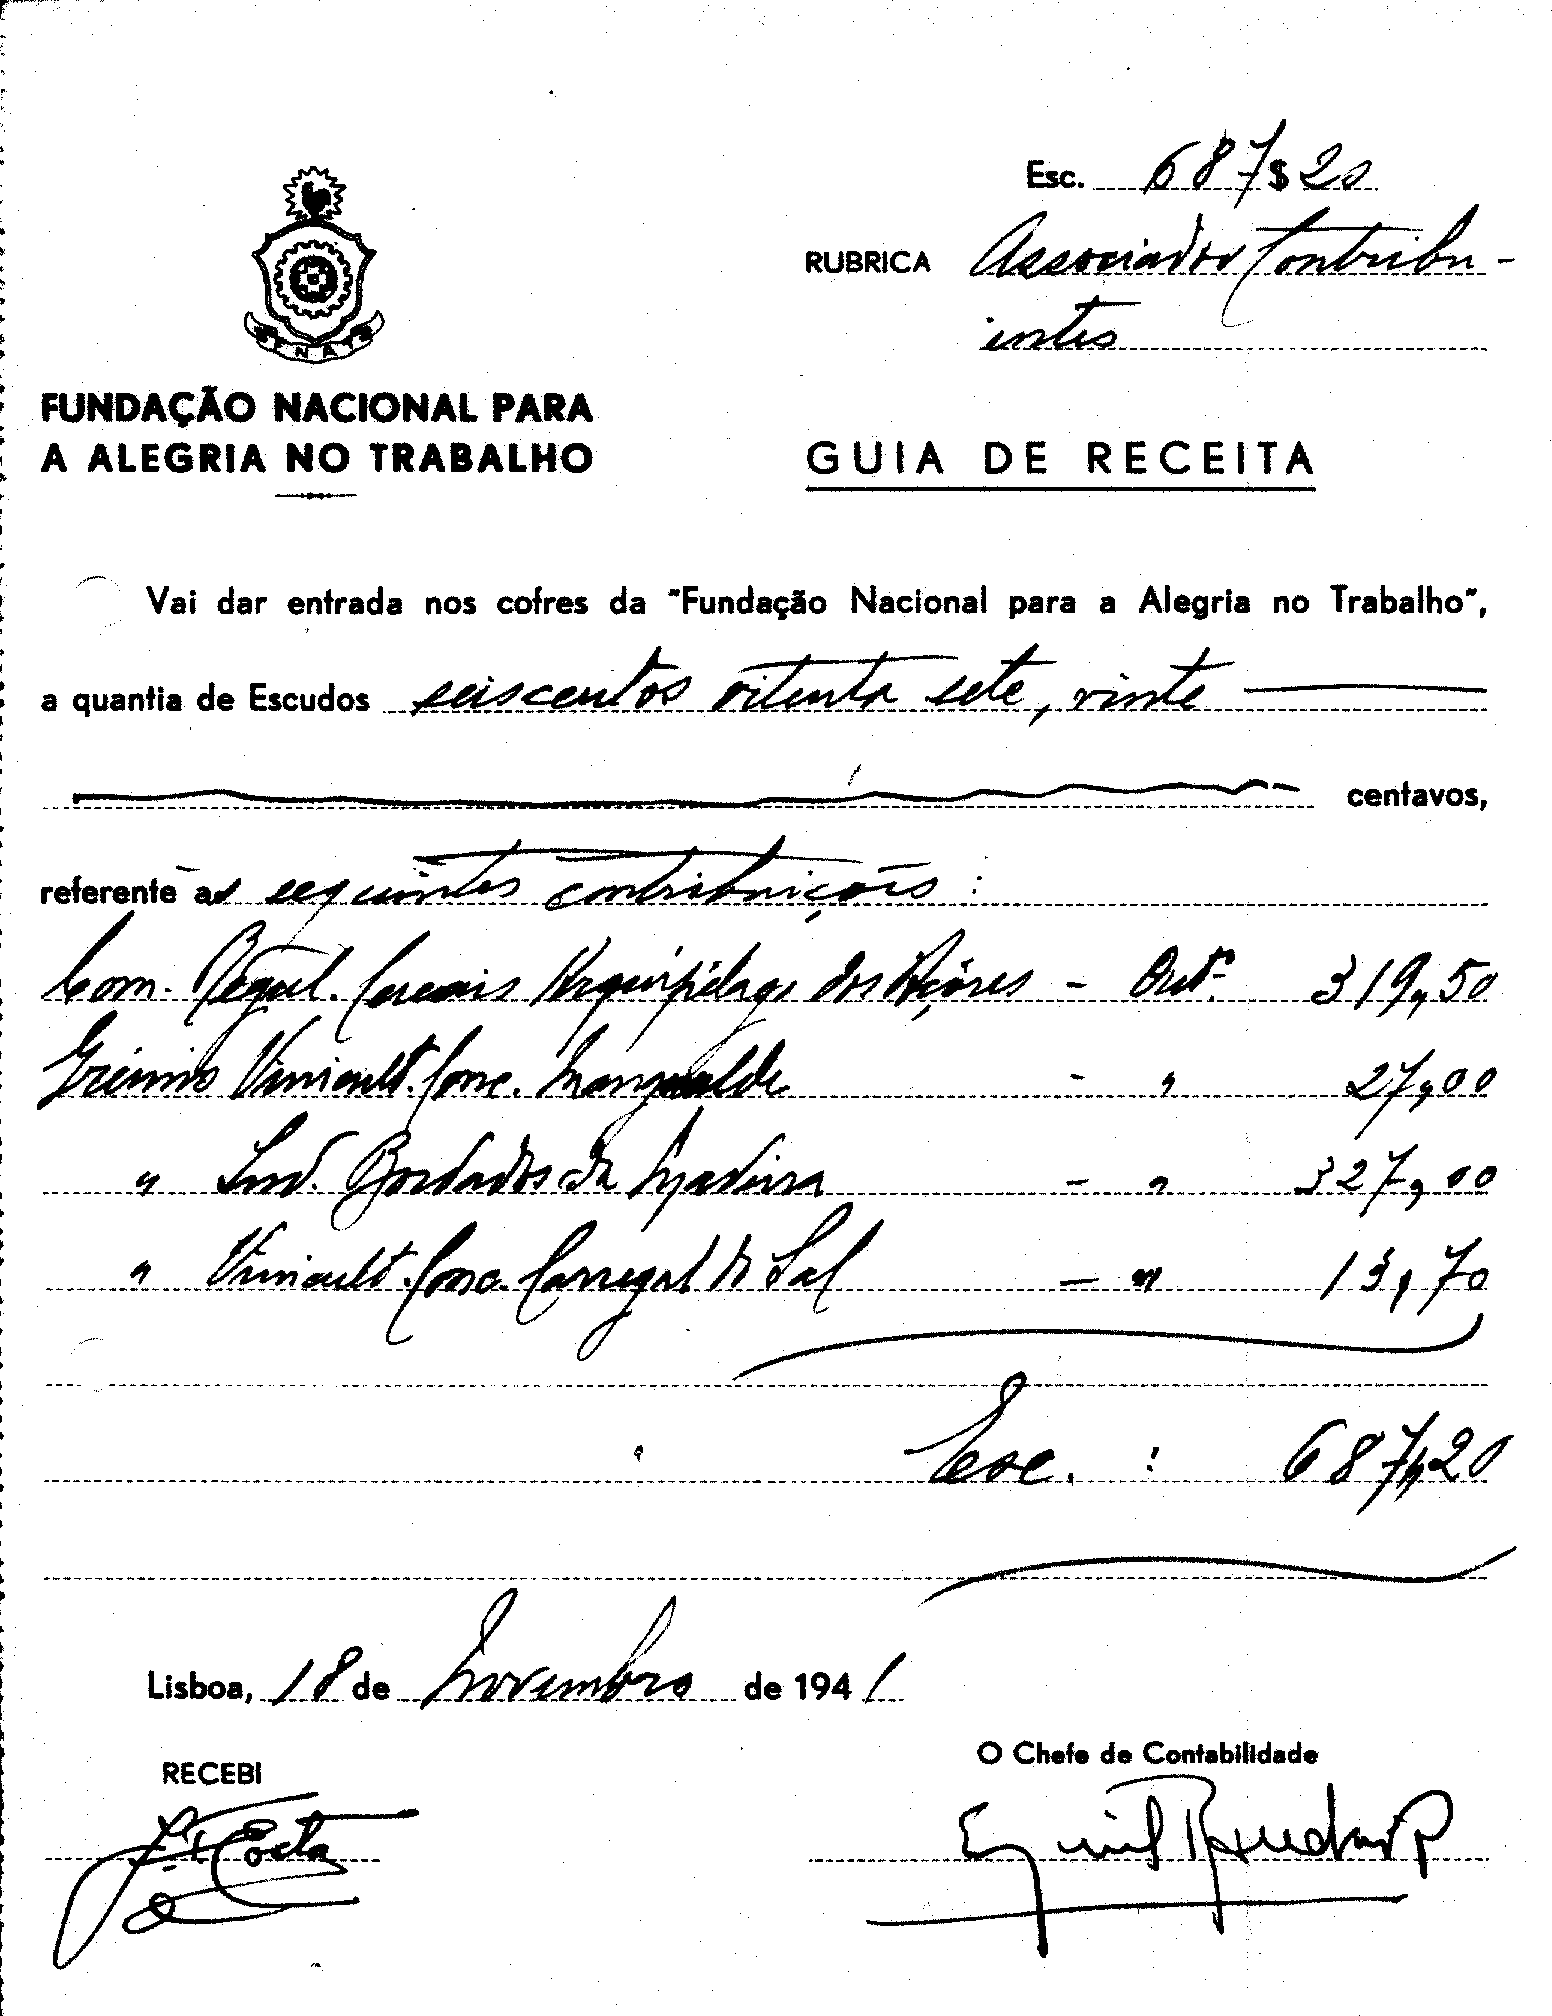 Esc. 687$20
RUBRICA Associados Contribu-
intes
FNAT
FUNDAÇÃO NACIONAL PARA
A ALEGRIA NO TRABALHO
GUIA DE RECEITA
Vai dar entrada nos cofres da "Fundação Nacional para a Alegria no Trabalho",
a quantia de Escudos seiscentos oitenta sete, vinte
centavos,
referente as seguintes contribuições :
Com. Regul. Cereais Arquipélago dos Açôres - Outº. 319,50
Grémio Vinicult. Conc. Mangualde - " 27,00
" Ind. Bordados da Madeira - " 327,00
" Vinicult. Conc. Carregal do Sal - " 13,70
Esc. : 687,20
Lisboa, 18 de Novembro de 1941
RECEBI
O Chefe de Contabilidade
Costa